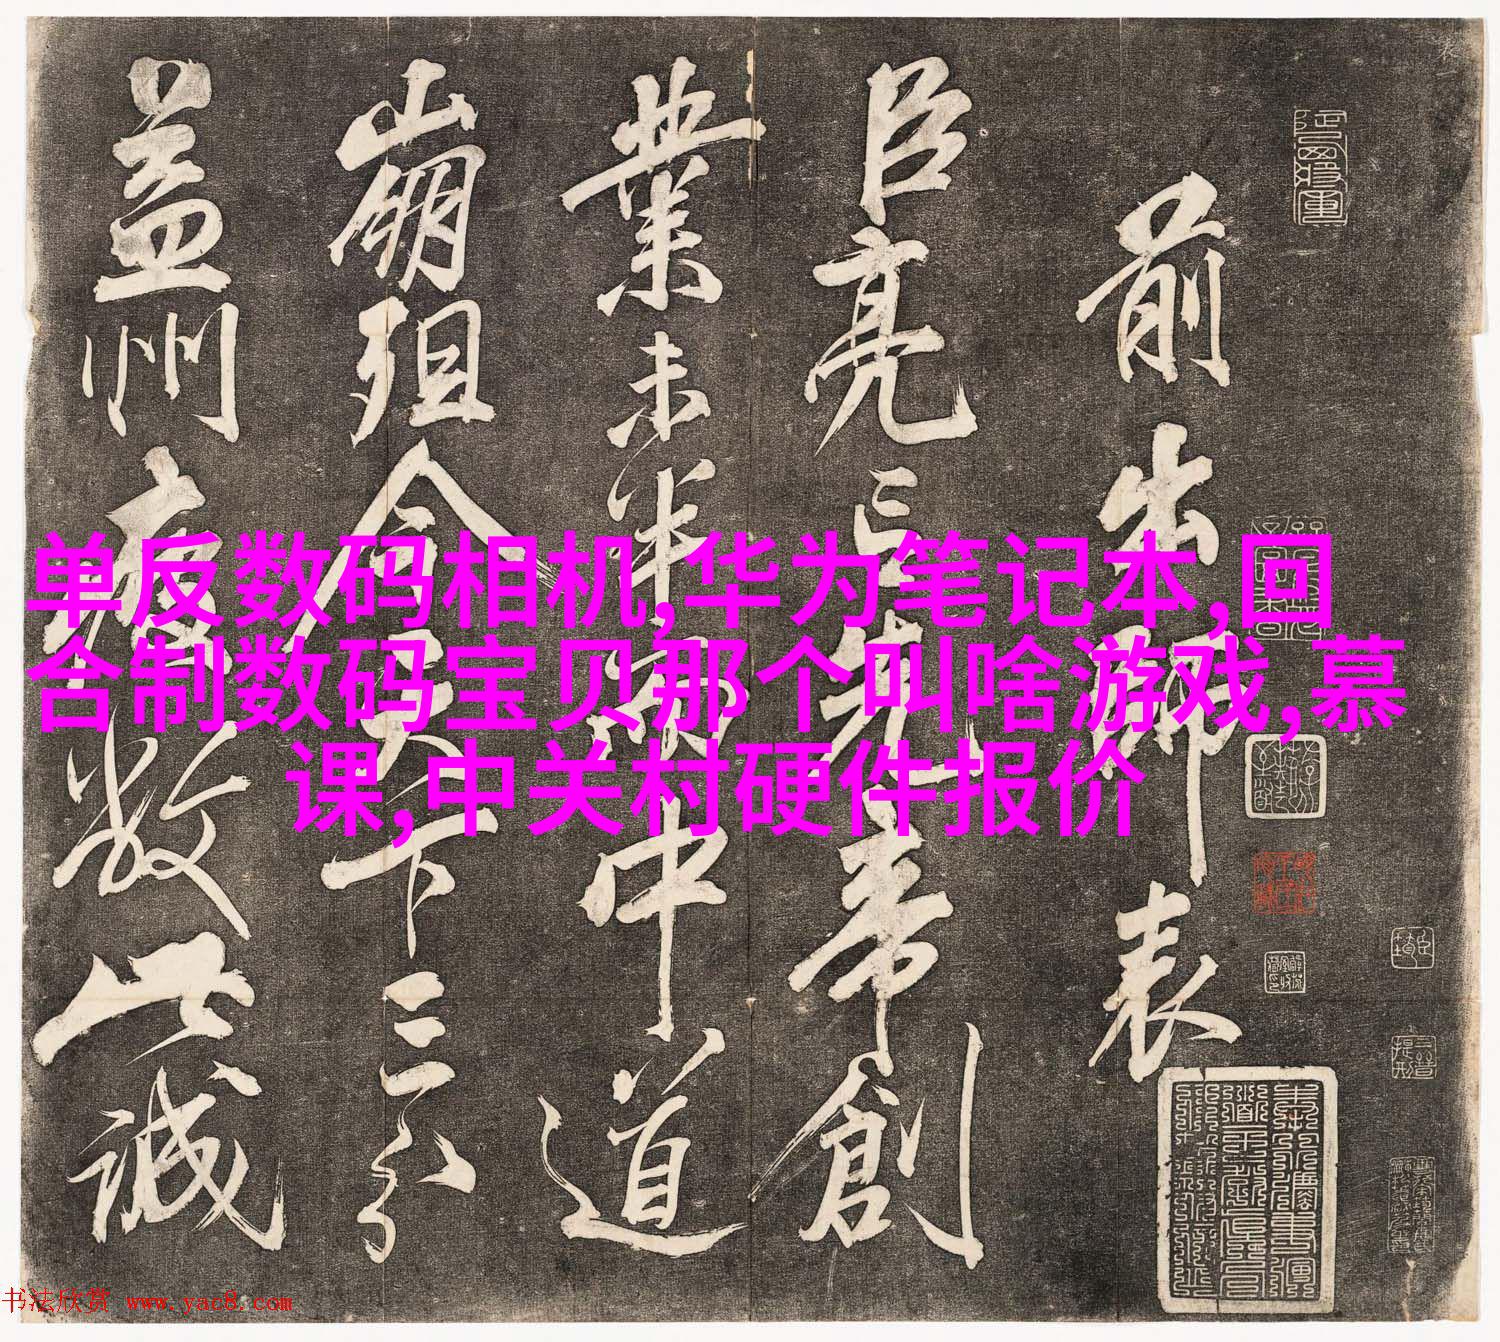 前出師表
臣亮言先帝創
業未半而中道
崩殂今天下三分
益州疲敝此誠
单反数码相机,华为笔记本,回
合制数码宝贝那个叫啥游戏,慕
课,中关村硬件报价
书法欣赏 www.yac8.com